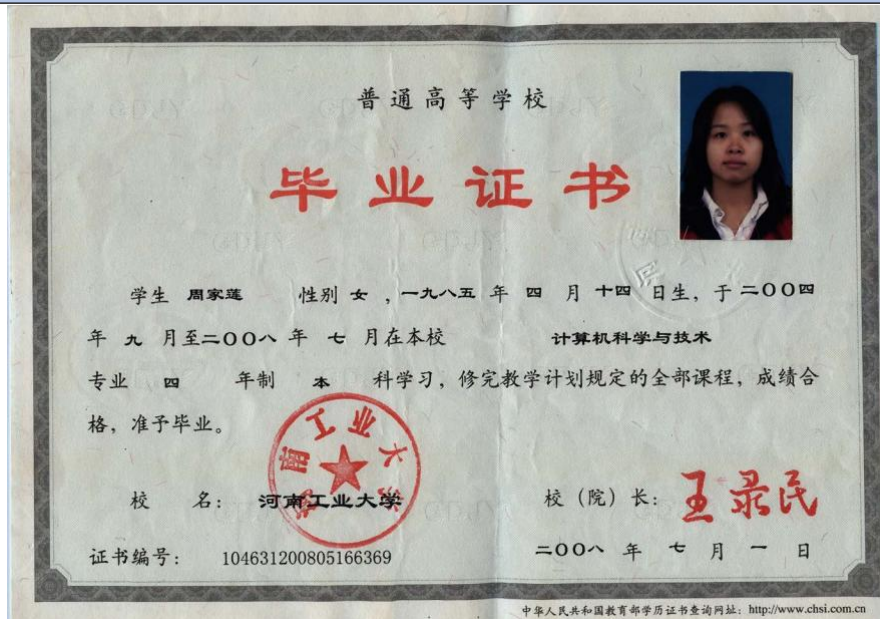 普通高等学校
毕业证书
学生 周家莲 性别 女 ，一九八五 年 四 月 十四 日生，于 二〇〇四
年 九 月至二〇〇八 年 七 月在本校 计算机科学与技术
专业 四 年制 本 科学习，修完教学计划规定的全部课程，成绩合
格，准予毕业。
河南工业大学
校 名： 河南工业大学
校（院）长：王录民
证书编号： 104631200805166369
二〇〇八 年 七 月 一 日
中华人民共和国教育部学历证书查询网址：http://www.chsi.com.cn